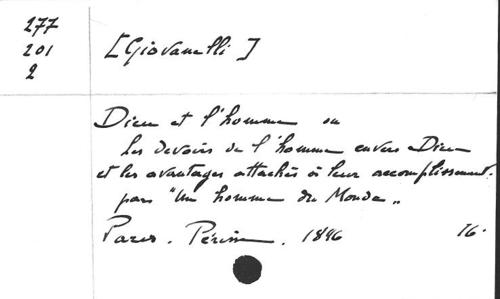 277
201
2
[Giovanelli]
Dieu et l'homme ou
les devoirs de l'homme envers Dieu
et les avantages attachés à leur accomplissement.
par "Un homme du Monde„
Paris. Périsse. 1846 16.